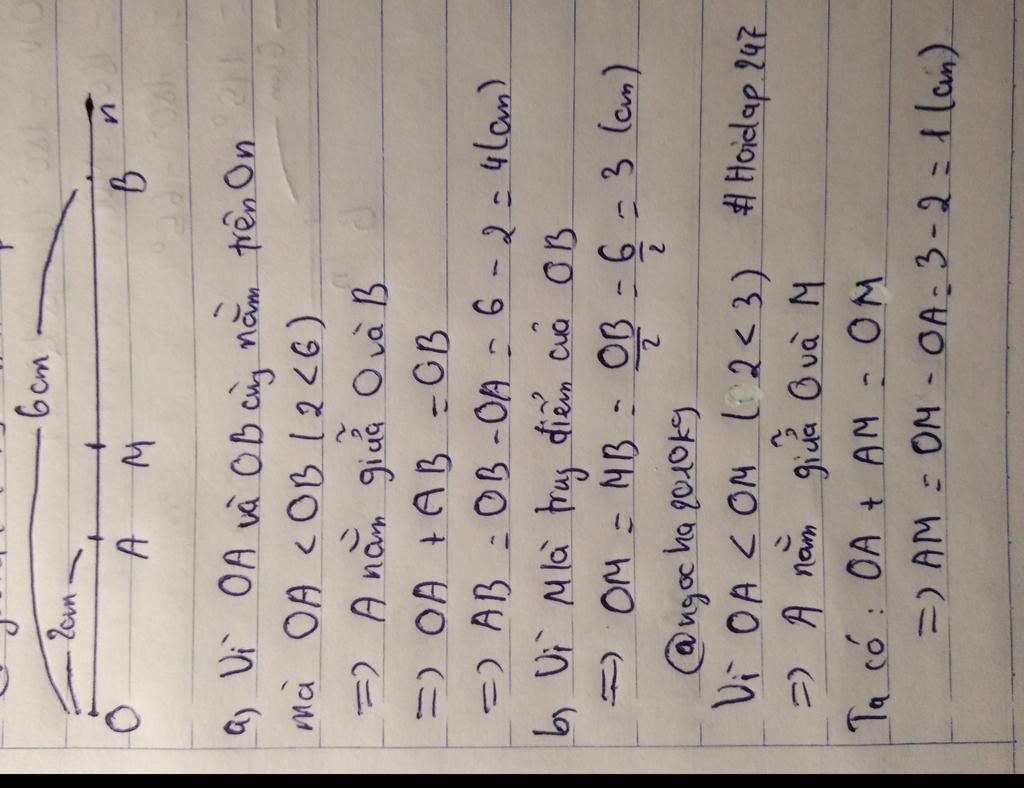 6cm
2cm
O A M B n
a, Vì OA và OB cùng nằm trên On
mà OA < OB (2 < 6)
=) A nằm giữa O và B
=) OA + AB = OB
=) AB = OB - OA = 6 - 2 = 4 (cm)
b, Vì M là trung điểm của OB
=) OM = MB = OB/2 = 6/2 = 3 (cm)
@ngocha2010kg
Vì OA < OM (2 < 3) # Hoidap247
=) A nằm giữa O và M
Ta có: OA + AM = OM
=) AM = OM - OA = 3 - 2 = 1 (cm)